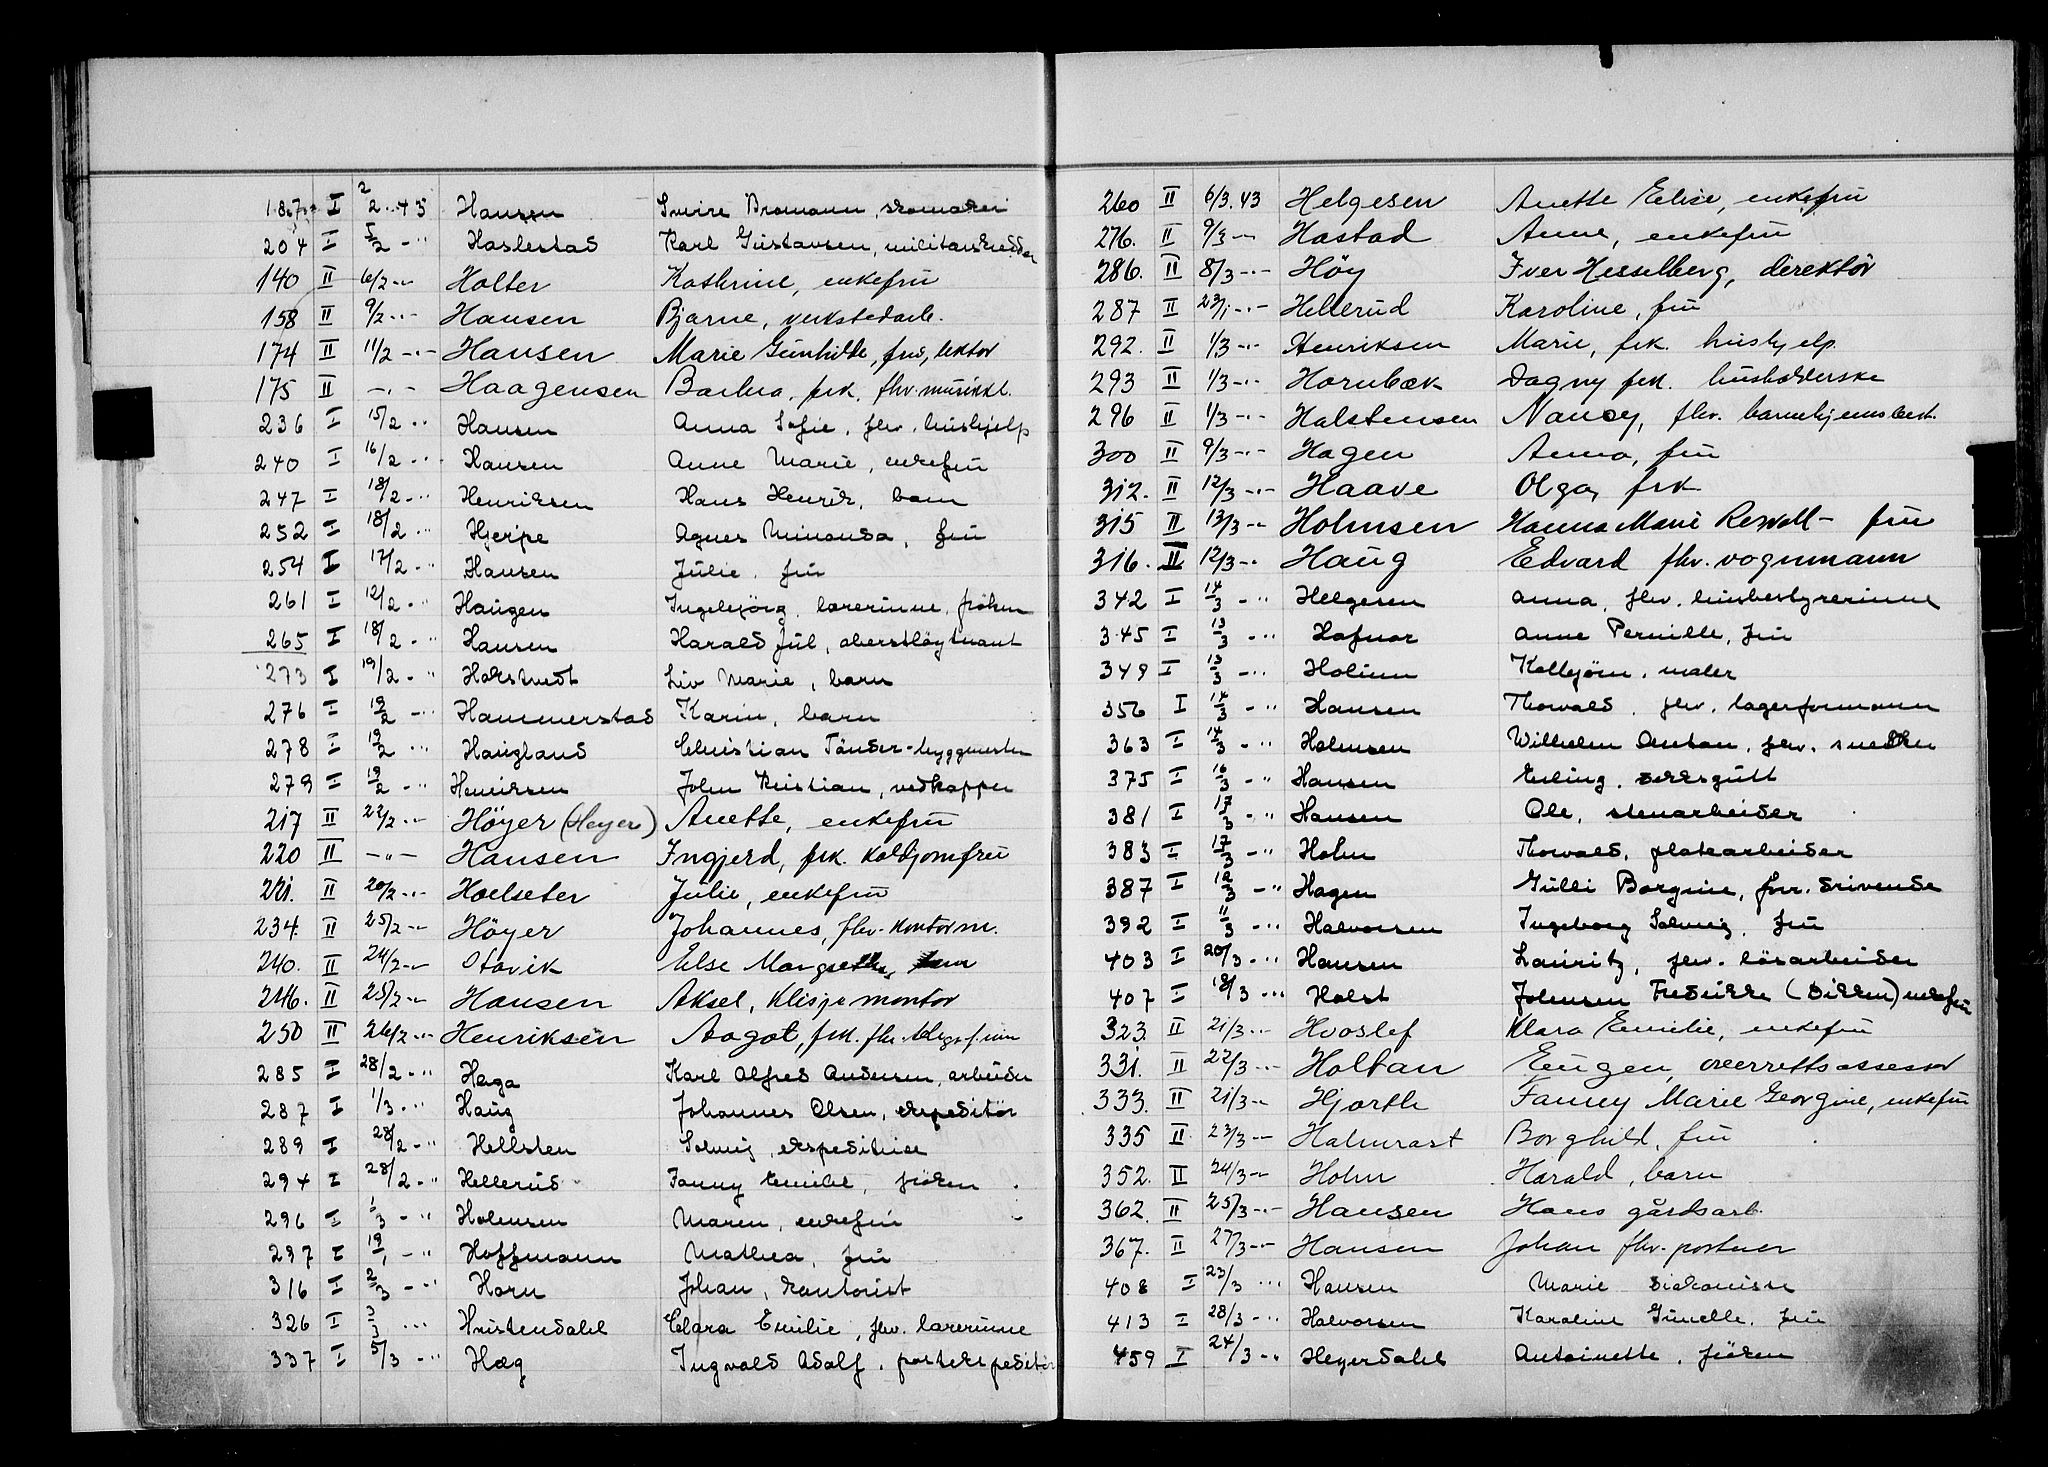 187 I 2/2 .. 43 Hansen Sverre Bromann, skomaker
204 I 5/2 - " Haslestad Karl Gustavsen, militærskredder
140 II 6/2 -..- Holter Kathrine, enkefru
158 II 9/2 -..- Hansen Bjarne, verkstedarb.
174 II 11/2 -..- Hansen Marie Gunhilde, fru, lektor
175 II -..- Haagensen Barbra, frk. fhv. musikkl.
236 I 15/2 - " Hansen Anna Sofie, fhv. hushjelp
240 I 16/2 - " Hansen Anne Marie, enkefru
247 I 18/2 - " Henriksen Hans Henrik, barn
252 I 18/2 - " Hjerpe Agnes Minanda, fru
254 I 17/2 - " Hansen Julie, fru
261 I 12/2 - " Haugen Ingebjörg, lærerinne, fröken
265 I 18/2 - " Hansen Harald Jul, oberstløytnant
273 I 19/2 - " Liv Marie, barn
276 I 19/2 - " Hammerstad Karin, barn
278 I 19/2 - " Haugland Christian Tönder - byggmester
279 I 19/2 - " Henriksen John Kristian, vedkapper
217 II 22/2 -..- Höyer (Heyer) Anette, enkefru
220 II -"- Hansen Ingjerd, frk. koldjomfru
221. II 20/2 -..- Hoelseter Julie, enkefru
234. II 25/2 -..- Höyer Johannes, fhv. kontorm.
240. II 24/2 -..- Hovik Else Margrethe,
246. II 25/2 -..- Hansen Aksel, klisjemontør
250 II 26/2 -..- Henriksen Aagot, frk. fhv. telegraf.
285 I 28/2 - " Haga Karl Alfred Andersen, arbeider
287 I 1/3 - " Haug Johannes Olsen, ekspeditör
289 I 28/2 - " Hellsten Solveig, ekspeditrise
294 I 28/2 - " Hellerud Fanny Emilie, fröken
296 I 1/3 - " Holmsen Maren, enkefru
297 I 19/1 - " Hoffmann Mathea, fru
316 I 2/3 - " Horn Johan, kontorist
326 I 3/3 - " Hvistendahl Clara Emilie, fhv. lærerinne
337 I 5/3 - " Hæg Ingvald Adolf, postekspeditör
260 II 6/3. 43 Helgesen Anette Elise, enkefru
276. II 9/3 - Hastad Anne, enkefru
286. II 8/3 -..- Höy Iver Hesselberg, direktör
287 II 23/1 -..- Hellerud Karoline, fru
292. II 1/3 -..- Henriksen Marie, frk. hushjelp.
293 II 1/3 -..- Hornbæk Dagny frk. husholderske
296 II 1/3 -..- Halstensen Nancy, fhv. barnehjemsbest.
300 II 9/3 -..- Hagen Anna, fru
312. II 12/3 -..- Haave Olga, frk
315 II 13/3 -..- Holmsen Hanna Marie Rewold - fru
316. II 12/3 -..- Haug Edvard fhv. vognmann
342 I 14/3 - " Helgesen Anna, fhv. husbestyrerinne
345 I 13/3 - " Hofnor Anne Pernille, fru
349 I 13/3 - " Holium Kolbjörn, maler
356 I 14/3 - " Hansen Thorvald, fhv. lagerformann
363 I 14/3 - " Holmsen Wilhelm Anton, fhv. snekker
375 I 16/3 - " Hansen Erling, dekksgutt
381 I 17/3 - " Hansen Ole, stenarbeider
383 I 17/3 - " Holm Thorvald, platearbeider
387 I 18/3 - " Hagen Gulli Borgine, forr. drivende
392 I 11/3 - " Halvorsen Ingeborg Solveig, fru
403 I 20/3 - " Hansen Lauritz, fhv. lösarbeider
407 I 18/3 - " Holst Johnsen Fredrikke (Dikken) enkefru
323. II 21/3 -..- Hvoslef Klara Emilie, enkefru
331. II 22/3 -..- Holtan Eugen, overrettsassessor
333. II 21/3 - Hjorth Fanny Marie Georgine, enkefru
335 II 23/3 - Holmrast Borghild, fru
352. II 24/3 - Holm Harald, barn
362. II 25/3 -..- Hansen Hans gårdsarb.
367. II 27/3 -..- Hansen Johan fhv. portner
408 I 23/3 - " Hansen Marie diakonisse
413 I 28/3 - " Halvorsen Karoline Gunelle, fru
459 I 24/3 - " Heyerdahl Antoinette, fröken